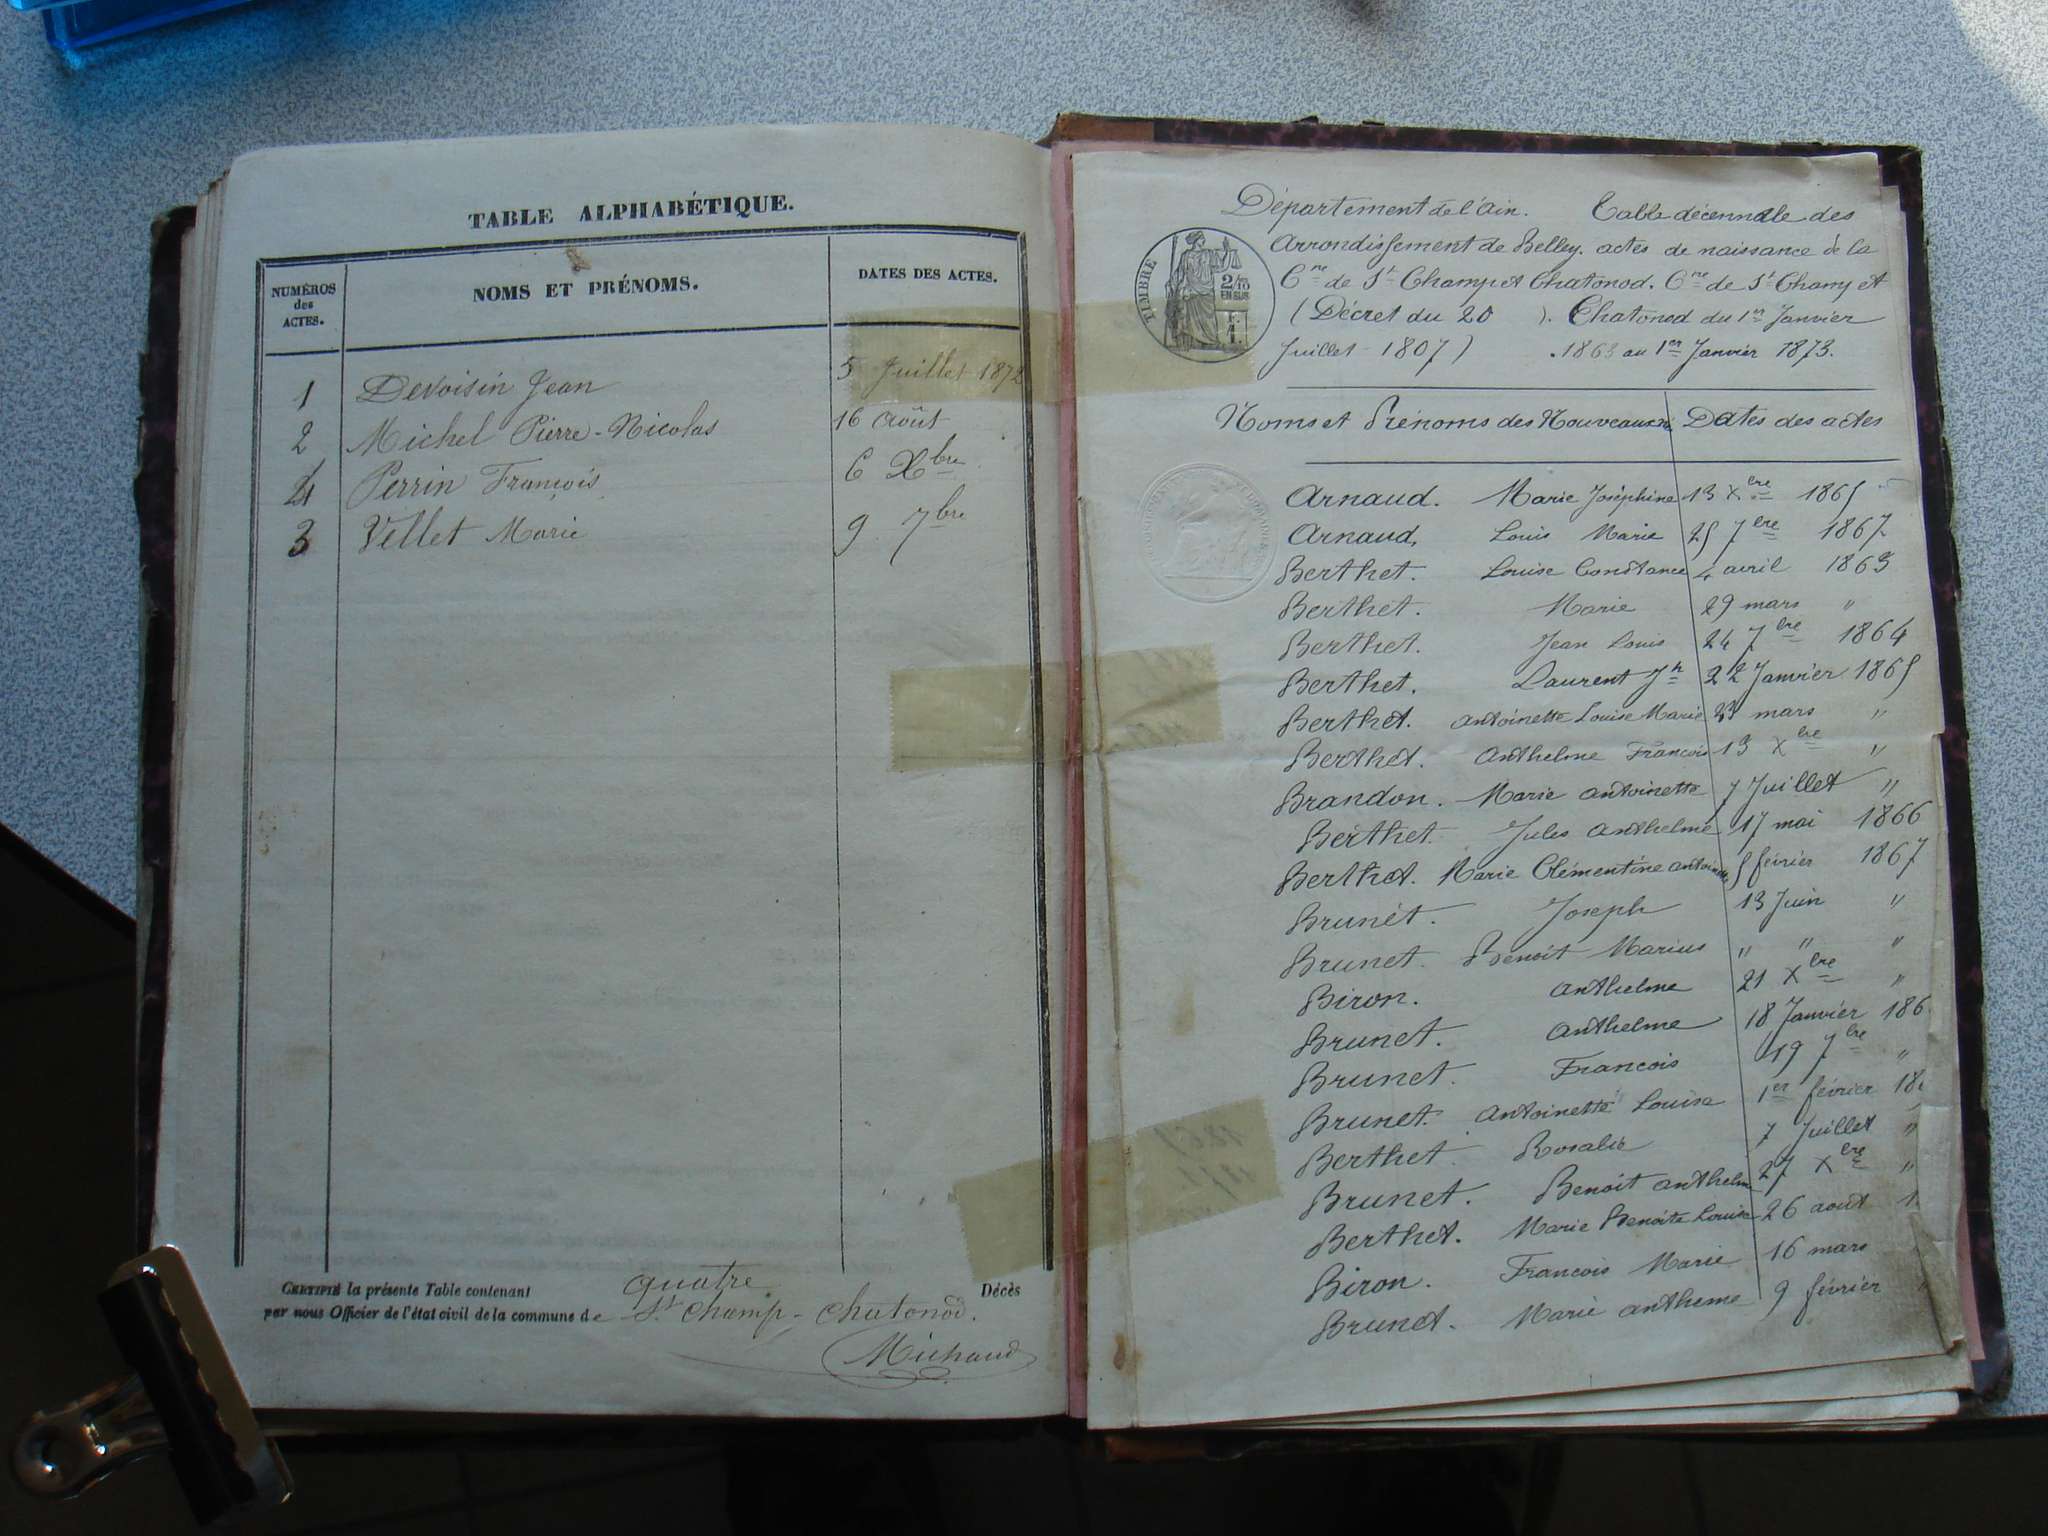 TABLE ALPHABÉTIQUE.
NUMÉROS des ACTES. NOMS ET PRÉNOMS. DATES DES ACTES.
1 Devoisin Jean 5 Juillet 1872
2 Michel Pierre-Nicolas 16 Août
4 Perrin François 6 Xbre
3 Vellet Marie 9 7bre
CERTIFIÉ la présente Table contenant quatre Décès
par nous Officier de l'état civil de la commune de St Champ-Chatonod.
Michaud
TIMBRE
2/10
EN SUS
Département de l'Ain. Table décennale des
Arrondissement de Belley. actes de naissance de la
Cne de St Champ et Chatonod. Cne de St Champ et
(Décret du 20 ). Chatonod du 1er Janvier
Juillet 1807) 1863 au 1er Janvier 1873.
Noms et Prénoms des Nouveaux n. Dates des actes
Arnaud. Marie Joséphine 13 Xbre 1865
Arnaud, Louis Marie 25 7bre 1867
Berthet. Louise Constance 4 avril 1863
Berthet. Marie 29 mars "
Berthet. Jean Louis 24 7bre 1864
Berthet. Laurent Jh 22 Janvier 1865
Berthet. Antoinette Louise Marie mars "
Berthet. Anthelme François 13 Xbre "
Brandon. Marie Antoinette 7 Juillet "
Berthet. Jules Anthelme 17 mai 1866
Berthet. Marie Clémentine Antoinette 5 février 1867
Brunet. Joseph 13 Juin "
Brunet. Benoit Marius " " "
Biron. Anthelme 21 Xbre "
Brunet. Anthelme 18 Janvier 186
Brunet. François 19 7bre "
Brunet. Antoinette Louise 1er février 18
Berthet. Rosalie 7 Juillet "
Brunet. Benoit Anthelm 27 Xbre "
Berthet. Marie Benoite Louise 26 aout 1
Biron. François Marie 16 mars
Brunet. Marie Antheme 9 février "